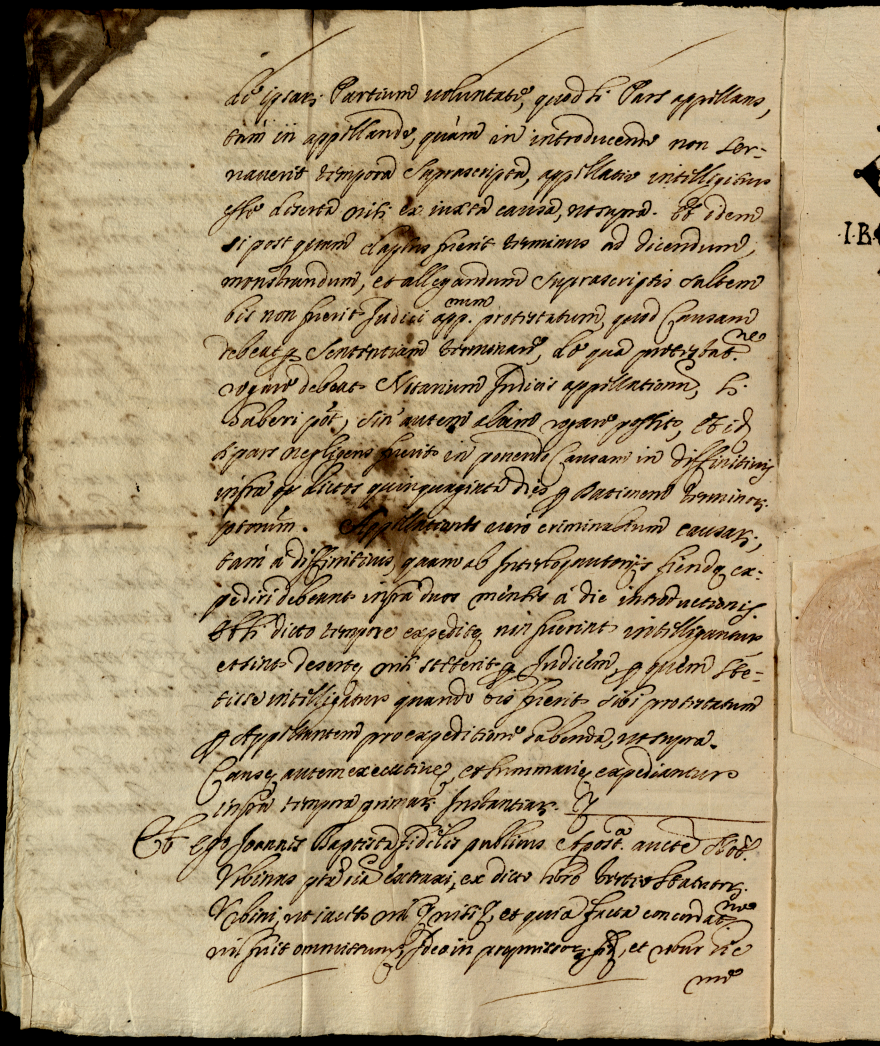 de ipsar. Partium voluntate, quod si Pars appellans,
tam in appellando, quam in introducendo non ser-
vaverit tempora suprascripta, appellatio intelligatur
esse deserta nisi ex iuxta causa, ut supra. Et idem
si post quam elapsus fuerit terminus ad dicendum,
monstrandum, et allegandum suprascriptis saltem
bis non fuerit Judici app.num protestatum, quod Causam
debeat p sententiam terminare, de qua protestat.ne
rogare debeat Notarium Judicis appellationum, si
haberi pot, sin autem alium rogare possit, et id
si pars negligens fuerit in ponendo Causam in diffinitivis
infra dictos quinquaginta dies p
Appellantes vero criminalium causar.,
tam a diffinitivis, quam ab Interloquutorijs fiendę ex-
pediri debeant infra duos menses a die introductionis.
Et si dicto tempore expeditę non fuerint intelligantur
et sint desertę nisi steterit p Judicem p quem ste-
tisse intelligatur quando bis fuerit sibi protestatum
p Appellantem pro expeditione habenda, ut supra.
Causę autem executivę, et summarię expediantur
infra tempora primar. Instantiar.
Et ego Joannes Baptista fidelis publicus Apost.a aucte Not.
Urbinas extraxi, ex dicto libro tertio Statutor.
Urbini, ut iacet et quia facta concordat.ne
nil fuit ommissum, Ideo in fid., et rogatus
me
I·B